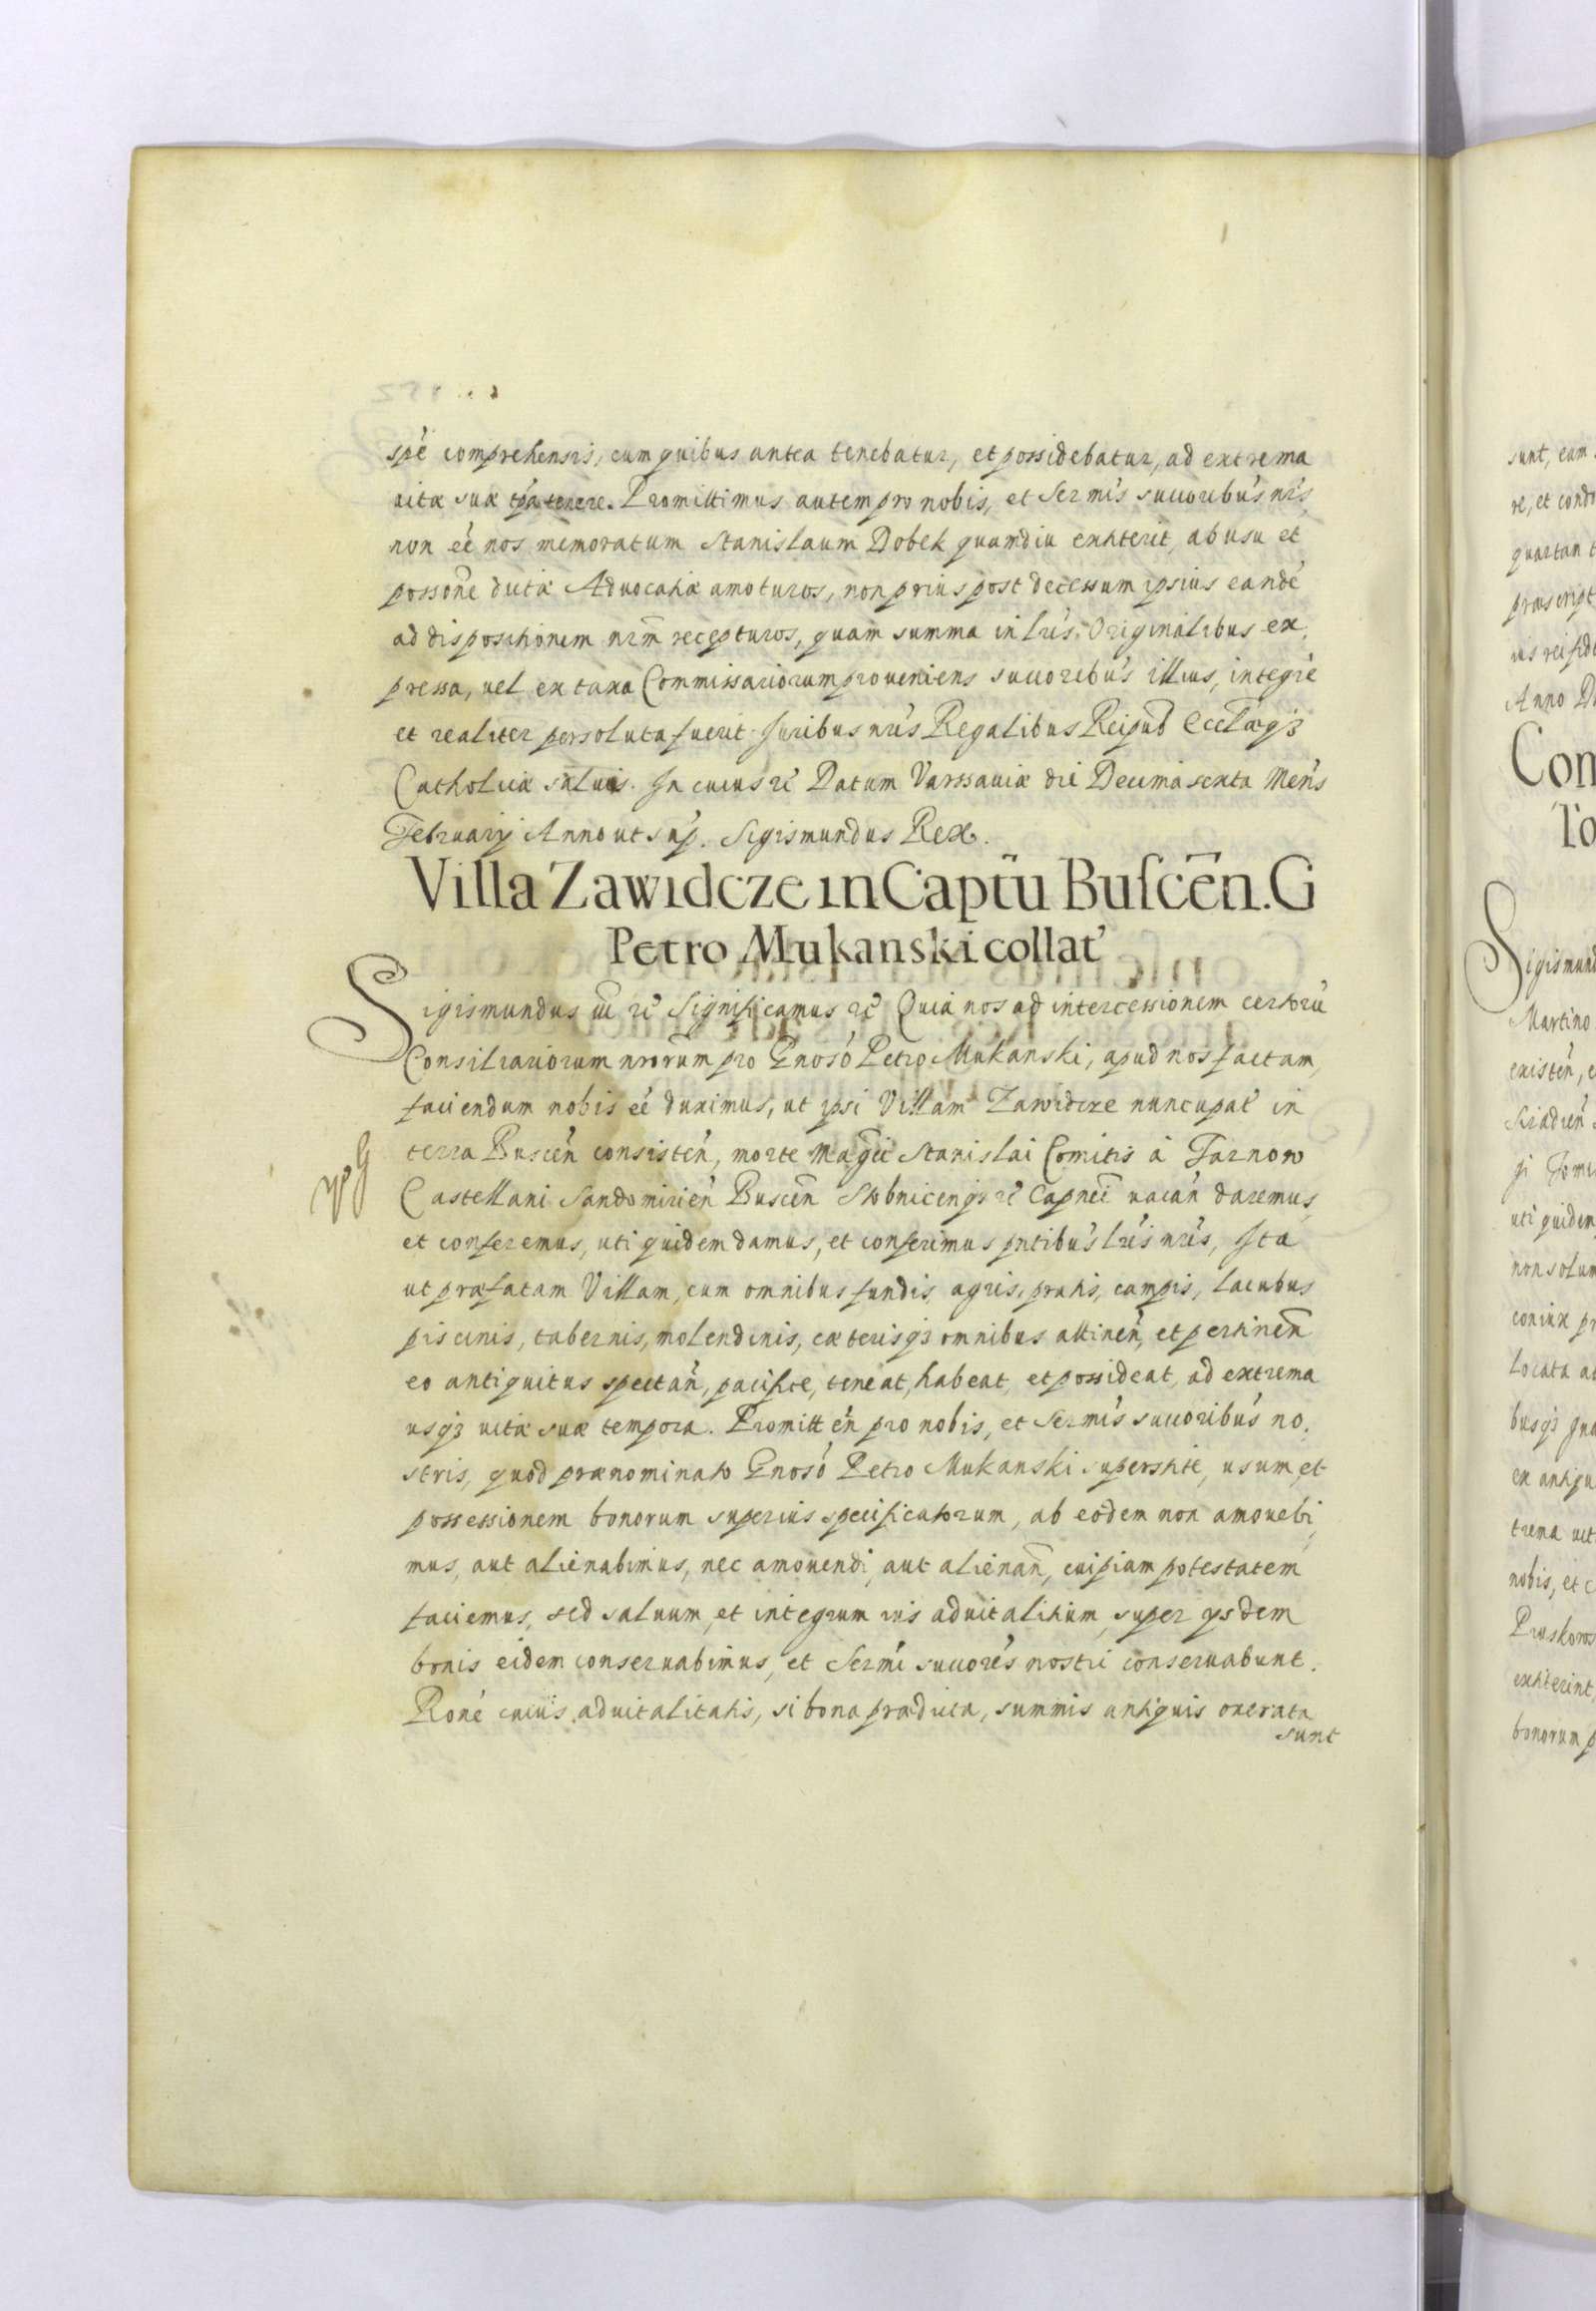 spé comprehensis, cum quibus antea tenebatur, et possidebatur, ad extrema
vitæ suæ tpa tenere. Promittimus autem pro nobis, et Sermis succoribus nris,
non eé nos memoratum Stanislaum Dobek quamdiu extiterit, ab usu et
possone dictæ Advocatiæ amoturos, non prius post decessum ipsius eandé
ad dispositionem nrm recepturos, quam summa in lris Originalibus ex
pressa, vel ex taxa Commissariorum proveniens succoribus illius, integrè
et realiter persoluta fuerit. Juribus nris Regalibus Reipub Ecclæq3
Catholicæ salvis. In cuius rĉ Datum Varssaviæ diē Decima sexta Mens
Februarij Anno ut sup. Sigismundus Rex.
Villa Zawidcze in Captū Buscēn. G
Petro Mukanski collat
Sigismundus iii rĉ Significamus rĉ Quia nos ad intercessionem certorū
Consiliariorum nrorum pro Gnosó Petro Mukanski, apud nos factam,
faciendum nobis eé duximus, ut ipsi Villam Zawidcze nuncupat in
terra Buscēn consistēn, morte Magci Stanislai Comitis à Tarnow
VG
Castellani Sandomiriēn Buscēn Stobnicenq3 rĉ Capnei vacān daremus,
et conferemus, uti quidem damus, et conferimus pntibus lris nris, Ita
ut præfatam Villam, cum omnibus fundis, agris, pratis, campis, lacubus
piscinis, tabernis, molendinis, cæterisq3 omnibus attinēn, et pertinēn
eo antiquitus spectān, pacifice, teneat, habeat, et possideat, ad extrema
usq3 vitæ suæ tempora. Promittēn pro nobis, et Sermis succoribus no.
stris, quod prænominato Gnosó Petro Mukanski superstite, usum, et
possessionem bonorum superius specificatorum, ab eodem non amovebi
mus, aut alienabimus, nec amovendi, aut alienān, cuipiam potestatem
faciemus, sed salvum, et integrum ius advitalitium, super ysdem
bonis eidem conservabimus, et Sermi succores nostri conservabunt.
Roné cuius advitalitatis, si bona prædicta, summis antiquis onerata
sunt
sunt, eam
re, et cond
quartan t
præscript
ius rei fid
Anno D
Con
To
Sigismund
Martino
existēn, e
Siradiēn
gi Tomi
uti quidem
non solum
coniux pr
locata a
busq3 Juq
ex antiqu
trema vit
nobis, et c
Pruskows
extiterint
bonorum p